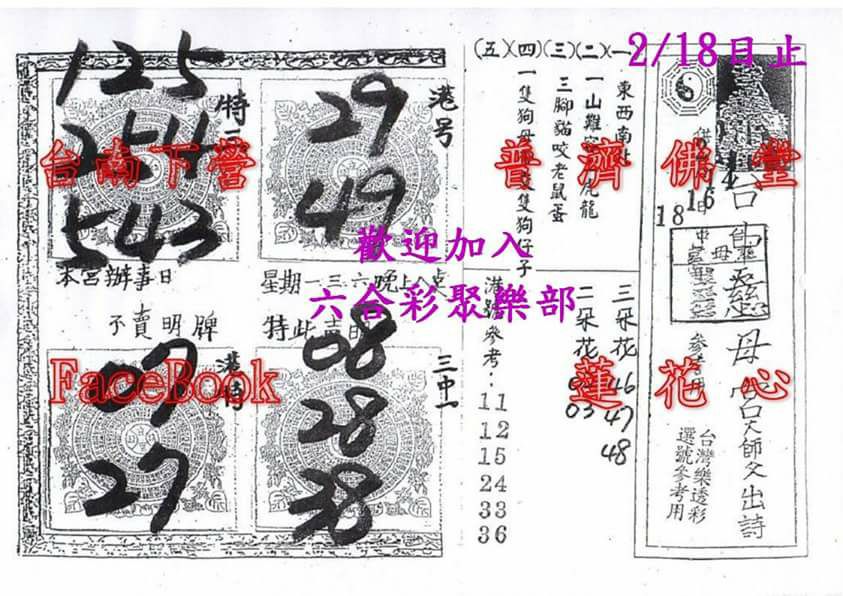 2/18日止
125
254
543
特三
29
49
港号
台南下營
普濟佛堂
歡迎加入
六合彩聚樂部
本宮辦事日
星期一三六晚上八点
不賣明牌
特此声明
07
27
港特
08
28
38
三中一
FaceBook
蓮花心
(五)(四)(三)(二)(一)
東西南北
一山難容二虎龍
三腳貓咬老鼠蛋
一隻狗母雙隻狗仔子
港號參考:
11
12
15
24
33
36
三朵花
46
47
48
二朵花
03
4
16
18
台
慈
母宮天師父出詩
參考用
台灣樂透彩
選號參考用